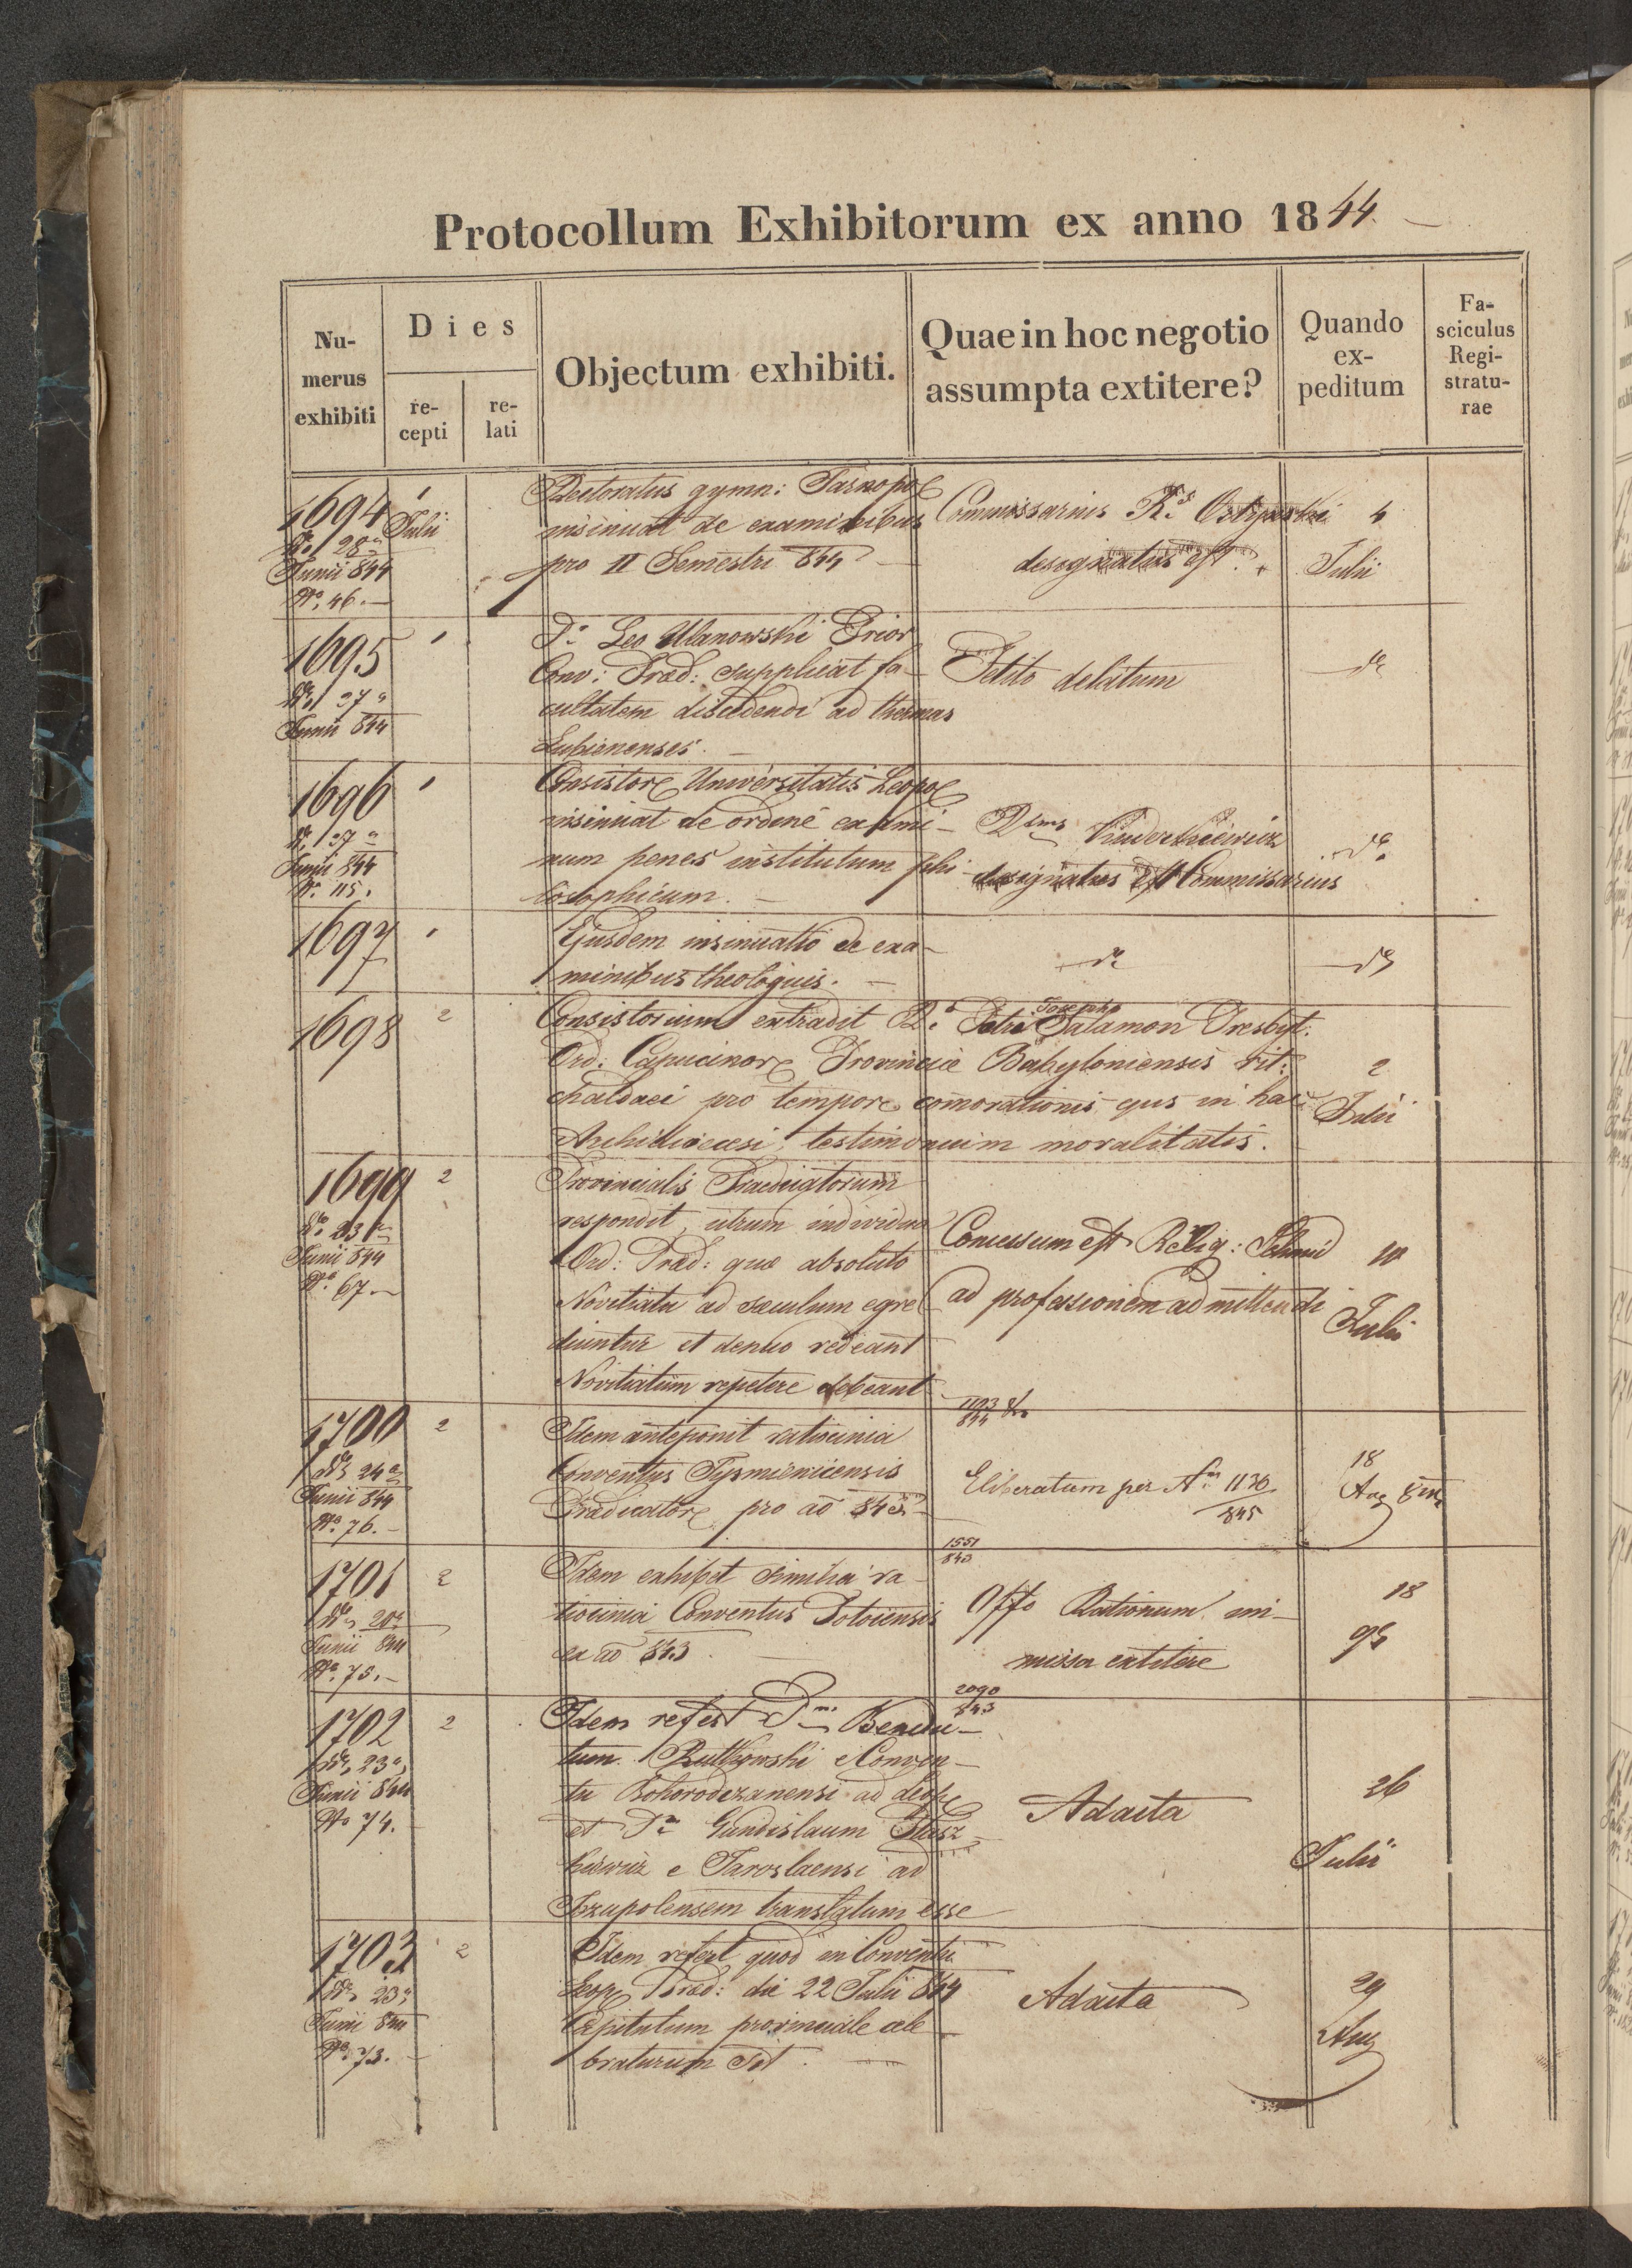 Protocollum Exhibitorum ex anno 1844.
Numerus exhibiti
Dies
recepti
relati
Objectum exhibiti.
Quae in hoc negotio assumpta extitere?
Quando expeditum
Fasciculus Registraturae
1694
1 Julii
28a
Junii 844
No. 46.
Rectoratus gymn: Tarnopol
insinuat de examinibus
pro II Semestri 844
Commissarius
designatus est.
4
Julii
1695
1
27a
Junii 844
Leo Ulanowski Prior
Conv: Præd: supplicat fa-
cultatem discedendi ad thermas
Lubienenses.
Petito delatum
1696
1
27a
Junii 844
No. 115.
Consistor Universitatis Leopol
insinuat de ordine exami-
num penes institutum phi-
losophicum.
designatus est Commissarius
1697
1
Ejusdem insinuatio de exa-
minibus theologicis.
1698
2
Consistorium extradit Petro Josepho Salamon Presbyt.
Ord: Capucinor Provinciæ Babyloniensis rit:
chaldaei pro tempore comorationis ejus in hac
Archidiœcesi testimonium moralitatis.
2
Julii
1699
2
23a
Junii 844
No. 67.
Provincialis Praedicatorum
respondit, utrum individua
Ord: Præd: quæ absoluto
Novitiatu ad sæculum egre-
diuntur et denuo redeant
Novitiatum repetere debeant
Concessum est Relig: Schmid
ad professionem admittendi
10
Julii
1700
2
24a
Junii 844
No. 76.
Idem anteponit ratiocinia
Conventus Tysmienicensis
Prædicator pro ao 843
1193
844
Eliberatum per 1130
845
18
Aug
1701
2
20a
Junii 844
No. 75.
Idem exhibet similia ra-
tiocinia Conventus Potocensis
ex ao 843
1551
843
Offo Rationum im-
missa extitere
18
1702
2
23a
Junii 844
No 74.
Idem refert Benedic-
tum Rutkowski e Conven-
tu Bohorodczanensi ad Leop
et Gundislaum
e Jaroslaensi ad
Jezupolensem translatum esse
2090
843
Ad acta
26
Julii
1703
2
23a
Junii 844
No. 73.
Idem refert quod in Conventu
Leop Præd: die 22 Julii 844
Capitulum provinciale cele-
braturum sit.
Ad acta
29
Aug